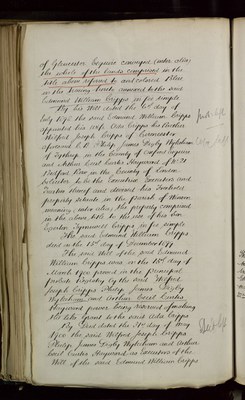 of Gloucester Esquire conveyed inter alia
the whole of the lands comprised in the
title above referred to and colored Blue
on the tracing hereto annexed to the said
Edmund William Cripps in fee simple
By his Will dated the day of
July 1896 the said Edmund William Cripps
appointed his wife Ada Cripps his brother
Wilfred Joseph Cripps of Cirencester
aforesaid C.B. Philip James Digby Wykeham
of Tythrop in the County of Oxford Esquire
and Arthur Cecil Curtis Hayward of
Bedford Row in the County of London
Solicitor to be the Executors Executrix and
Trustees thereof and devised his freehold
property situate in the Parish of
meaning inter alia the property comprised
in the above title to the use of his Son
Egerton Tymewell Cripps in fee simple
The said Edmund William Cripps
died on the 13th day of December 1899
The said Will of the said Edmund
William Cripps was on the day of
March 1900 proved in the Principal
Probate Registry by the said Wilfred
Joseph Cripps Philip James Digby
Wykeham and Arthur Cecil Curtis
Hayward power being reserved of making
the like Grant to the said Ada Cripps
By Deed dated the 31st day of May
1900 the said Wilfred Joseph Cripps
Philip James Digby Wykeham and Arthur
Cecil Curtis Hayward as Executors of the
Will of the said Edmund William Cripps